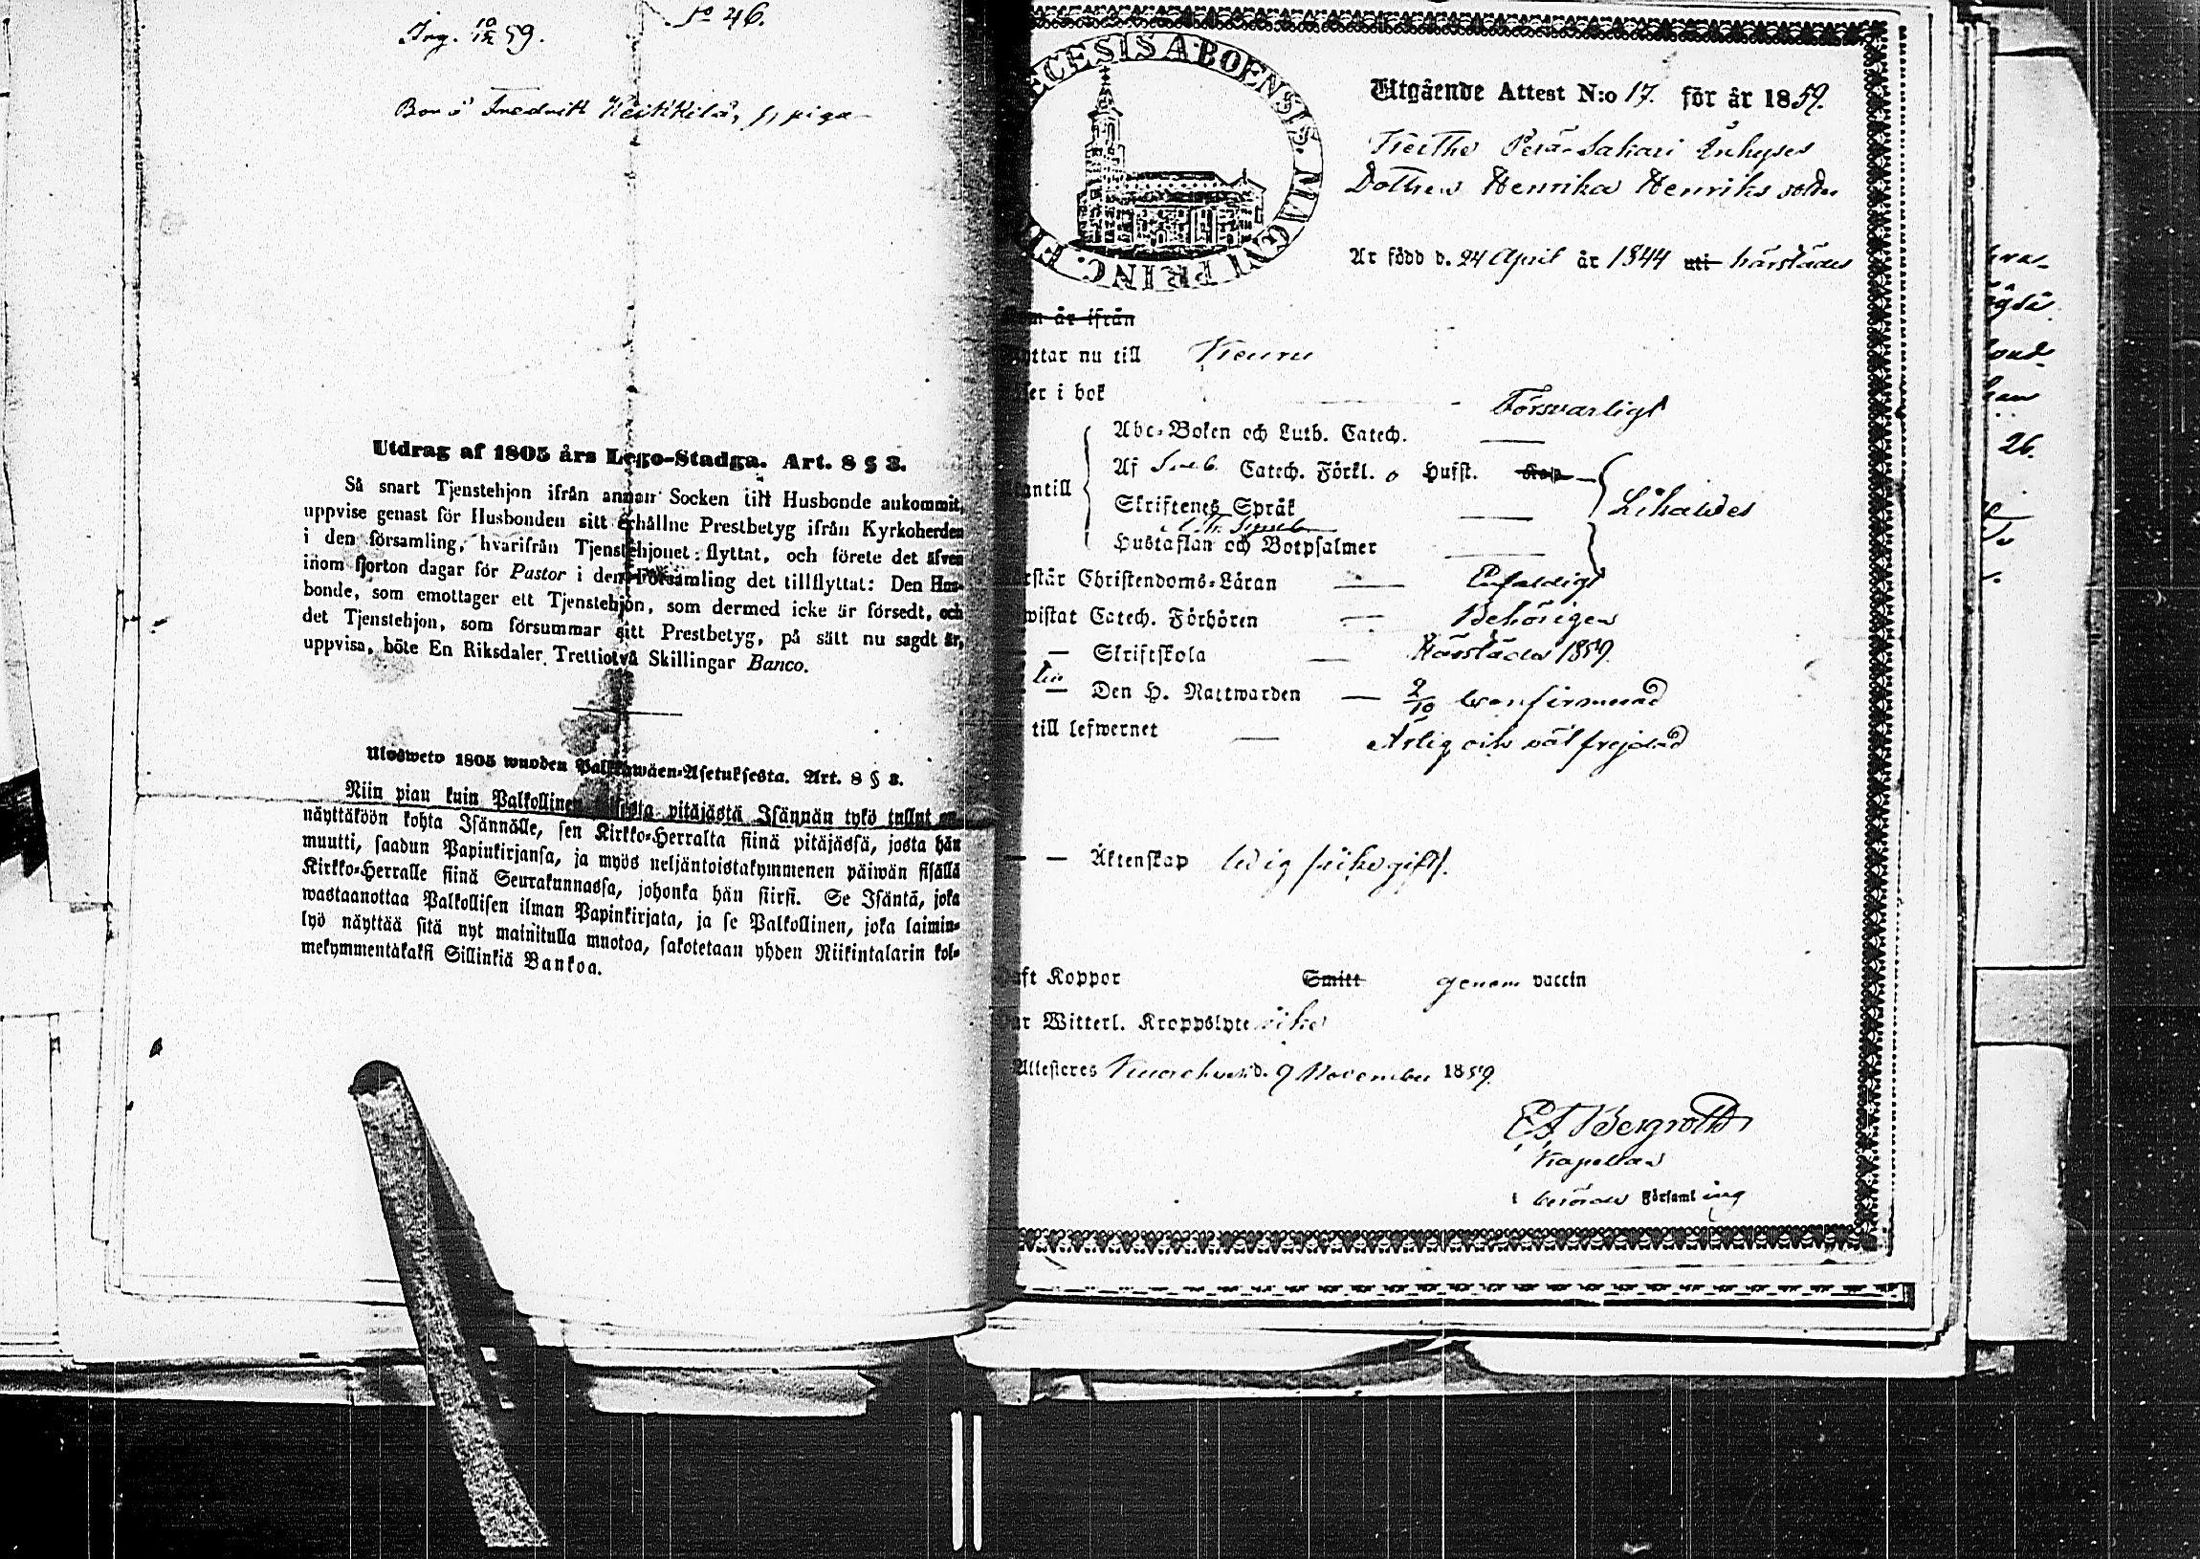 Ing. 10/12 59.
No 46.
Bor i Fredrik Heikkilä, s. piga
Utdrag af 1805 års Lego-Stadga. Art. 8 § 3.
Så snart Tjenstehjon ifrån annan Socken till Husbonde ankommit,
uppvise genast för Husbonden sitt erhållne Prestbetyg ifrån Kyrkoherden
i den församling, hvarifrån Tjenstehjonet flyttat, och förete det äfven
inom fjorton dagar för Pastor i den Församling det tillflyttat: Den Hus-
bonde, som emottager ett Tjenstehjon, som dermed icke är försedt, och
det Tjenstehjon, som försummar sitt Prestbetyg, på sätt nu sagdt är,
uppvisa, böte En Riksdaler Trettiotvå Skillingar Banco.
Ulosweto 1805 wuoden Palkkawäen-Asetuksesta. Art. 8 § 3.
Niin pian kuin Palkollinen toisesta pitäjästä Isännän tykö tullut on,
näyttäköön kohta Isännälle, sen Kirkko-Herralta siinä pitäjässä, josta hän
muutti, saadun Papinkirjansa, ja myös neljäntoistakymmenen päiwän sisällä
Kirkko-Herralle siinä Seurakunnassa, johonka hän siirsi. Se Isäntä, joka
wastaanottaa Palkollisen ilman Papinkirjata, ja se Palkollinen, joka laimin-
lyö näyttää sitä nyt mainitulla muotoa, sakotetaan yhden Riikintalarin kol-
mekymmentäkaksi Sillinkiä Bankoa.
ECESIS ABOENSIS. MAGNI PRINC.
Utgående Attest N:o 17. för år 1859.
Perä-Sakari Inhyses
Dottren Henrika Henriksdotter
Är född d. 24 April år 1844 uti härstädes
är ifrån
ttar nu till Keuru
er i bok Försvarligt
Abc-Boken och Luth. Catech.
Af Sveb. Catech. Förkl. o Hufst.
antill
Skriftenes Språk
Likaledes
A. Tr. Symb.
Hustaflan och Botpsalmer
rstår Christendoms-Läran Enfaldigt
wistat Catech. Förhören Behörigen
— Skriftskola Härstädes 1859.
— Den H. Nattwarden — 2/10 Confirmerad
till lefwernet Ärlig och väl frejdad
— — Äktenskap ledig icke gift.
aft Koppor Smitt genom vaccin
ar Witterl. Kroppslyte icke
Attesteres d. 9 November 1859.
Bergroth
Kapellan
i berörde Församling
26.